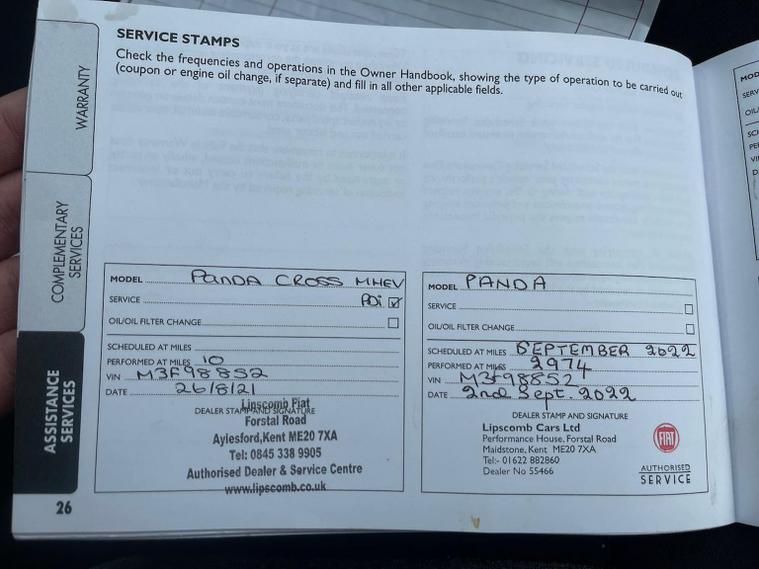 SERVICE STAMPS
Check the frequencies and operations in the Owner Handbook, showing the type of operation to be carried out
(coupon or engine oil change, if separate) and fill in all other applicable fields.
WARRANTY
COMPLEMENTARY
SERVICES
ASSISTANCE
SERVICES
MODEL PANDA CROSS MHEV
SERVICE PDi ☑
OIL/OIL FILTER CHANGE ☐
SCHEDULED AT MILES
PERFORMED AT MILES 10
VIN M3F98852
DATE 26/8/21
DEALER STAMP AND SIGNATURE
Lipscomb Fiat
Forstal Road
Aylesford,Kent ME20 7XA
Tel: 0845 338 9905
Authorised Dealer & Service Centre
www.lipscomb.co.uk
MODEL PANDA
SERVICE ☐
OIL/OIL FILTER CHANGE ☐
SCHEDULED AT MILES SEPTEMBER 2022
PERFORMED AT MILES 2974
VIN M3F98852
DATE 2nd Sept. 2022
DEALER STAMP AND SIGNATURE
Lipscomb Cars Ltd
Performance House, Forstal Road
Maidstone, Kent ME20 7XA
Tel:- 01622 882860
Dealer No 55466
FIAT
AUTHORISED
SERVICE
26